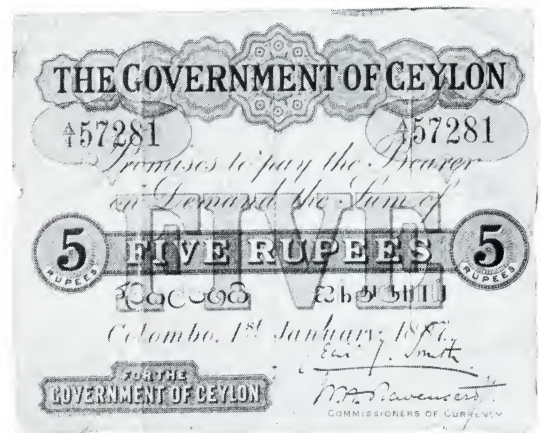 THE GOVERNMENT OF CEYLON
A/1 57281 A/1 57281
Promises to pay the Bearer
on Demand the Sum of
FIVE
5 RUPEES FIVE RUPEES 5 RUPEES
Colombo, 1st January,
Smith
FOR THE
GOVERNMENT OF CEYLON
COMMISSIONERS OF CURRENCY